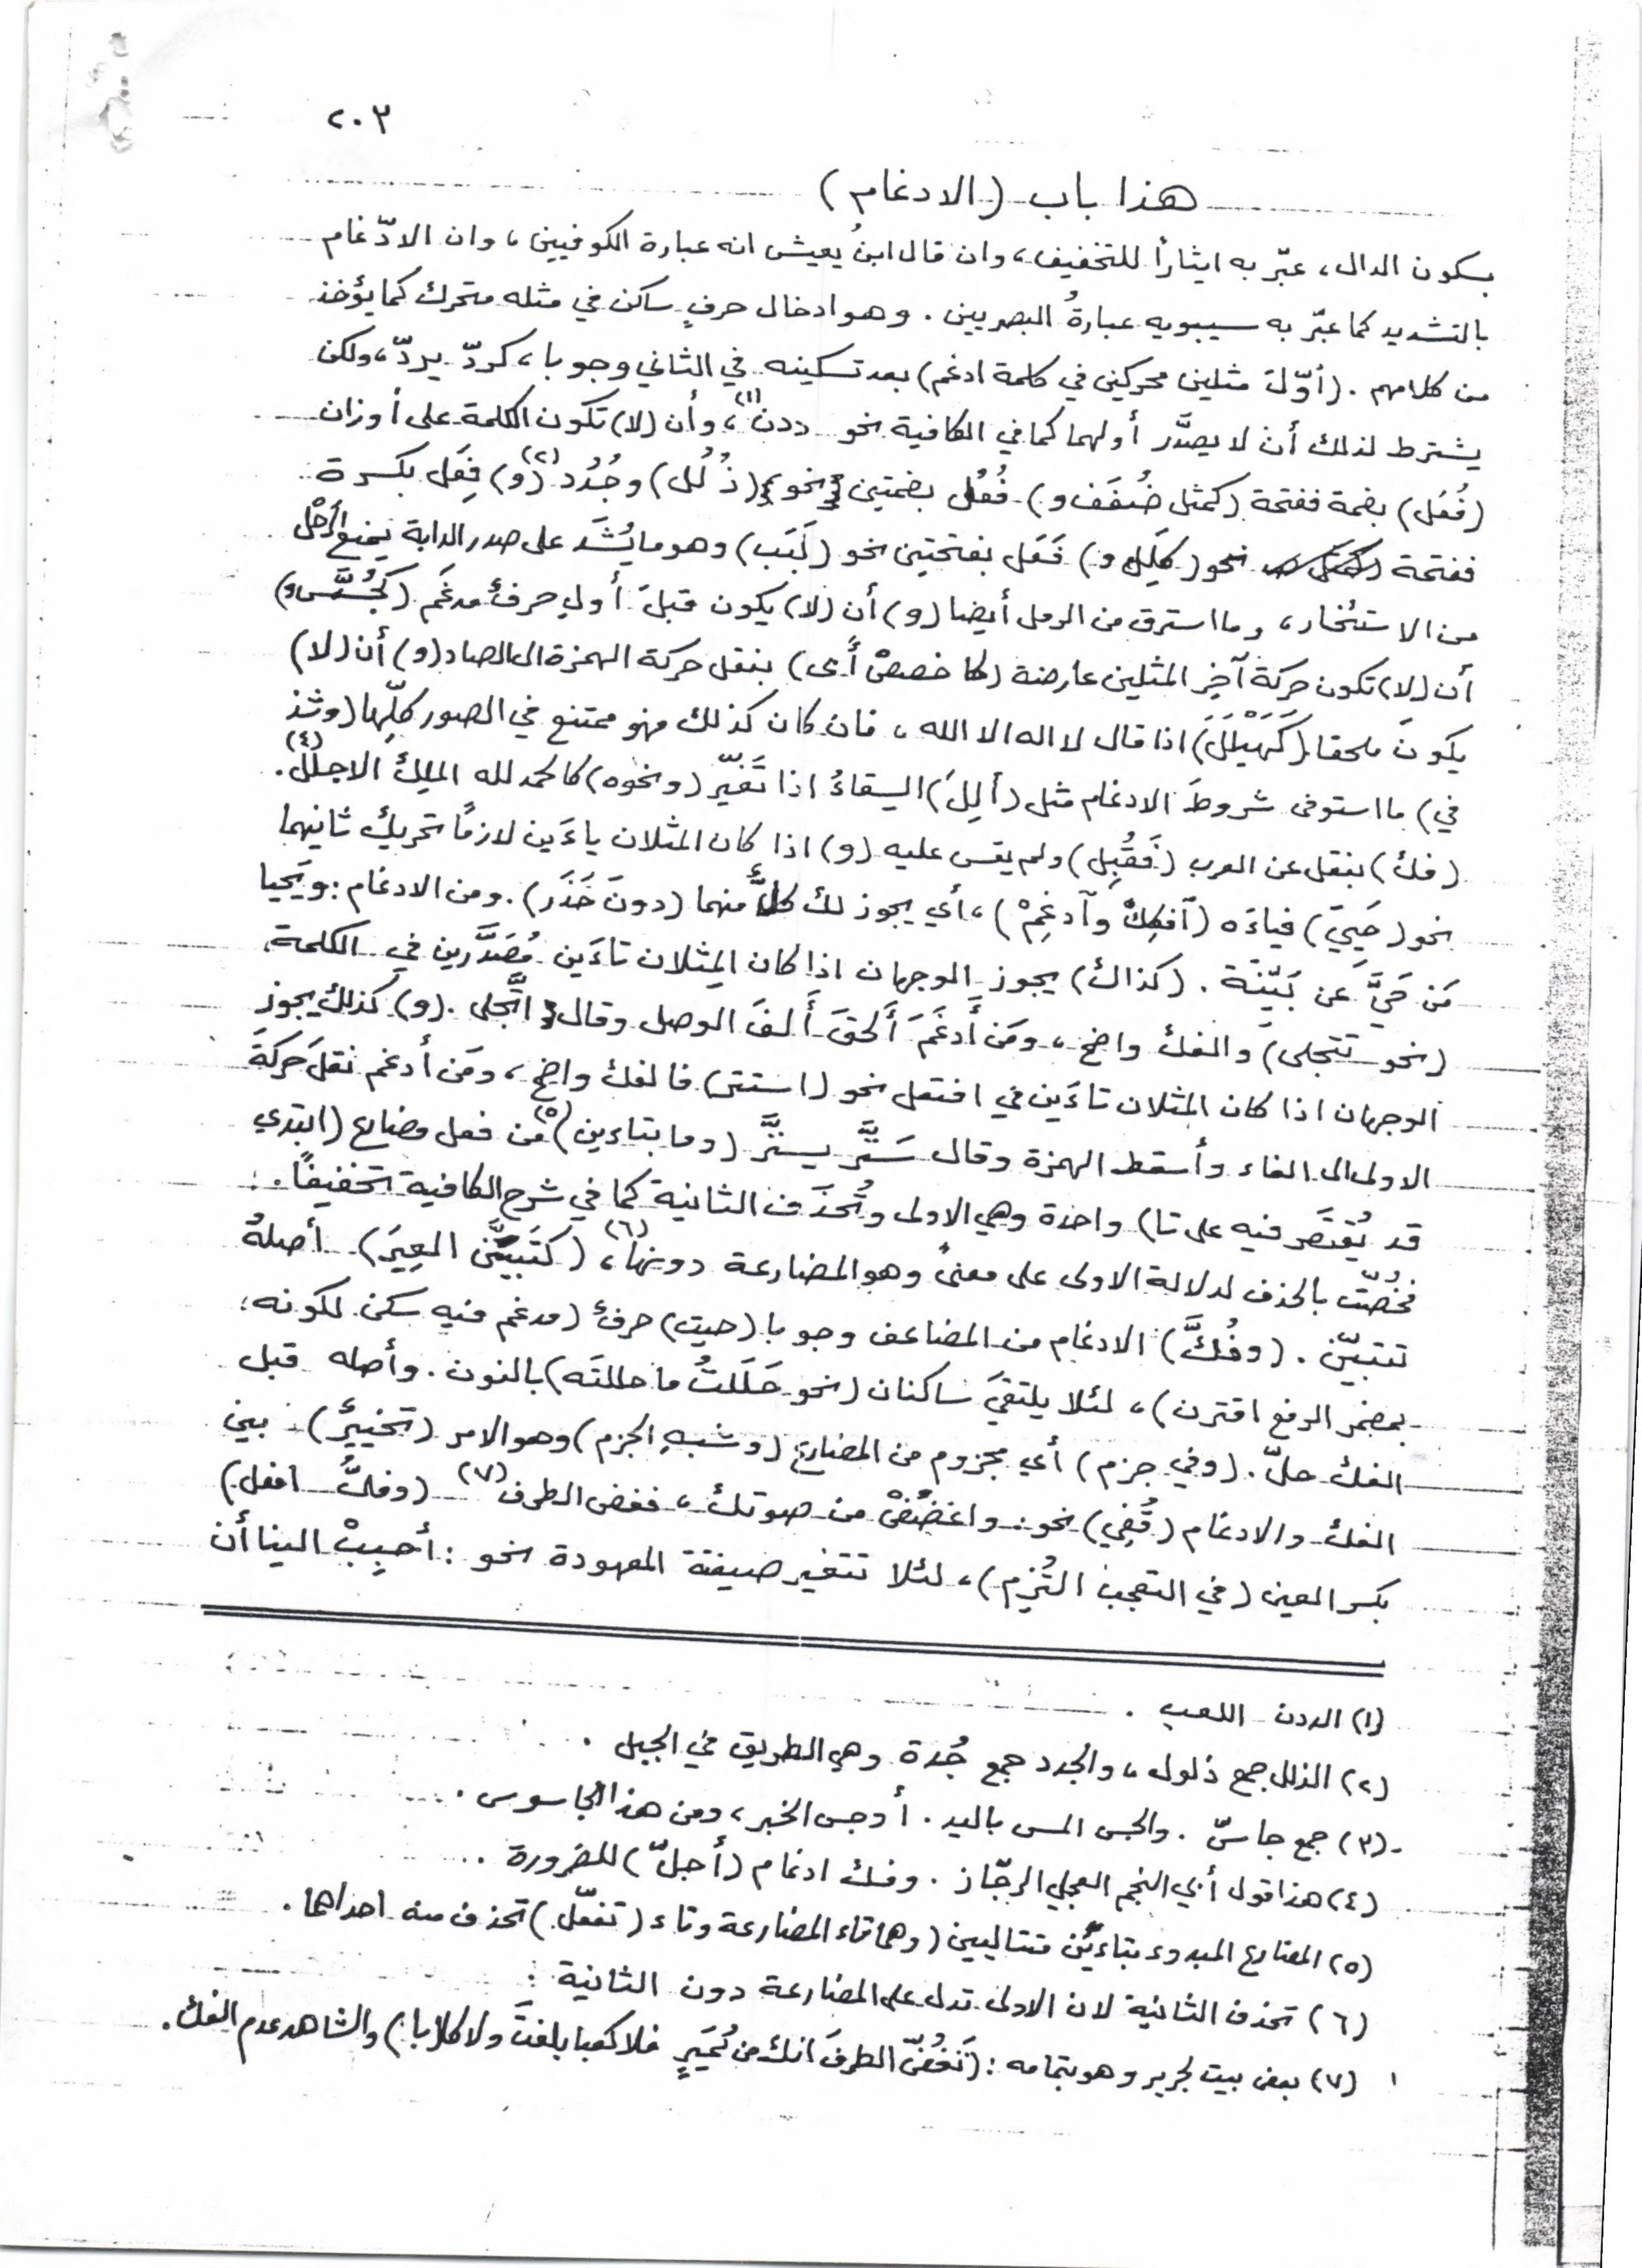 ٢٠٣
هذا باب (الادغام)
بسكون الدال، عبّر به ايثاراً للتخفيف، وان قال ابنُ يعيش انه عبارة الكوفيين، وان الادّغام
بالتشديد كما عبّر به سيبويه عبارةُ البصريين. وهو ادخال حرفٍ ساكن في مثله متحرك كما يؤخذ
من كلامهم. (أوّلَ مثلين محركين في كلمة ادغم) بعد تسكينه في الثاني وجوبا، كردّ يردّ، ولكن
يشترط لذلك أن لا يصدَّر أولهما كما في الكافية نحو ددن(١)، وأن (لا) تكون الكلمة على أوزان
(فُعَل) بضمة ففتحة (كمثل صُفَف و) فُعُل بضمتين نحو (ذُلُل) وجُدُد(٢) (و) فِعَل بكسرة
ففتحة نحو (كِلَل و) فَعَل بفتحتين نحو (لَبَب) وهو ما يُشَد على صدر الدابة يمنع الرَحْل
من الاستئخار، وما استرق من الرمل أيضا (و) أن (لا) يكون قبلَ أولي حرفٌ مدغَم (كجُسَّس و)
أن (لا) تكون حركة آخِر المثلين عارضة (كاخصصْ أَبى) بنقل حركة الهمزة الى الصاد (و) أن (لا)
يكونَ ملحقا (كَهَيْلَلَ) اذا قال لا اله الا الله، فان كان كذلك فهو ممتنع في الصور كلِّها (وشذ
في) ما استوفى شروطَ الادغام مثل (أَلِلَ) السقاءُ اذا تغَيّر (ونحوه) كالحمد لله الملِكِ الاجلل(٤).
(فك) بنقل عن العرب (فَقُبِل) ولم يقس عليه (و) اذا كان المثلان ياءَين لازماً تحريك ثانيهما
نحو (حَيِيَ) فياءَه (اَفكِكْ وآدغِمْ)، أي يجوز لك كلٌّ منهما (دونَ حَذَر). ومن الادغام: ويَحيا
مَن حَيَّ عَن بَيّنَة. (كذاك) يجوز الوجهان اذا كان المِثلان تاءَين مُصَدَّرين في الكلمة
(نحو تتجلى) والفك واضح، ومَن أَدغَمَ أَلحقَ أَلفَ الوصل وقال اتَّجلى. (و) كذلك يجوز
الوجهان اذا كان المثلان تاءَين في افتعل نحو (استتر) فالفك واضح، ومَن أدغم نقلَ حركةَ
الاولى الى الفاء وأسقط الهمزة وقال سَتَّر يستّر (وما بتاءين)(٥) من فعل مضارع (ابتدي
قد يُقتَصَر فيه على تا) واحدة وهي الاولى وتُحذَف الثانية كما في شرح الكافية تخفيفاً.
فخُصّت بالحذف لدلالة الاولى على معنىً وهو المضارعة دونها(٦)، (كتَبيَّن العِبَر) أصلهُ
تتبيّن. (وفُكَّ) الادغام من المضاعف وجوبا (حيث) حرفٌ (مدغم فيه سكن لكونه
بمضمر الرفع اقترن)، لئلا يلتقيَ ساكنان (نحو حَلَلتُ ما حللنَه) بالنون. وأصله قبل
الفك حلّ. (وفي جزم) أي مجزوم من المضارع (وشبهِ الجزم) وهو الامر (تخييرٌ) بين
الفك والادغام (قُفِي) نحو: واغضُضْ من صوتك، فغض الطرف(٧) (وفكُّ افعل)
بكسر العين (في التعجب التُزِم)، لئلا تتغير صيغته المعهودة نحو: أَحبِبْ الينا أن
(١) الددن اللعب.
(٢) الذلل جمع ذلول، والجُدد جمع جُدة وهي الطريق في الجبل.
(٣) جمع جاسّ. والجس المس باليد. أو جس الخبر، ومن هذا الجاسوس.
(٤) هذا قول أبي النجم العجلي الرجّاز. وفك ادغام (أجلّ) للضرورة.
(٥) المضارع المبدوء بتاءيْن متتاليين (وهما تاء المضارعة وتاء (تفعّل) تحذف منه احداهما.
(٦) تحذف الثانية لان الاولى تدل على المضارعة دون الثانية.
(٧) بعض بيت لجرير وهو بتمامه: (فَغُضّ الطرفَ انك من نُمَيرٍ فلا كعبا بلغتَ ولا كلابا) والشاهد عدم الفك.